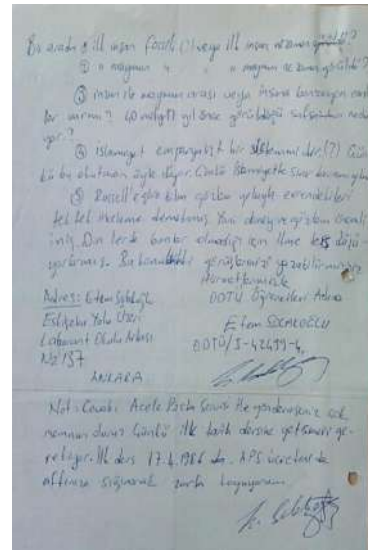 Bu arada ① ilk insan fosili (!) veya ilk insan ne zaman
② " maymun " " " maymun ne zaman görüldü?
③ insan ile maymun arası veya insana benzeyen canlı
var mıdır? 40 milyon yıl önce görüldüğü safsatası nedir
yor?
④ İslamiyet emperyalist bir sistem mi dir! (?) Çün
kü bu okutman öyle diyor. Çünkü İslamiyette sınır
⑤ Russell'e göre bilim gözlem yoluyla evrendekileri
tek tek inceleme demekmiş. Yani deney ve gözlem önemli
imiş. Din lerde bunlar olmadığı için ilme ters düşü-
yorlarmış. Bu konudaki görüşlerinizi yazabilirmisiniz
Hürmetlerimizle
Adres: Etem
ODTÜ Öğrencileri Adına
Eskişehir Yolu Üzeri
Laborant Okulu Arkası
No: 137
ANKARA
Etem
ODTÜ/I-42499-4
Not: Cevabı Acele Posta Servisi ile gönderirseniz çok
memnun oluruz. Çünkü ilk tarih dersine yetişmesi ge-
rekiyor. İlk ders 17.4.1986 da. APS ücretini de
affınıza sığınarak zarfa koyuyorum